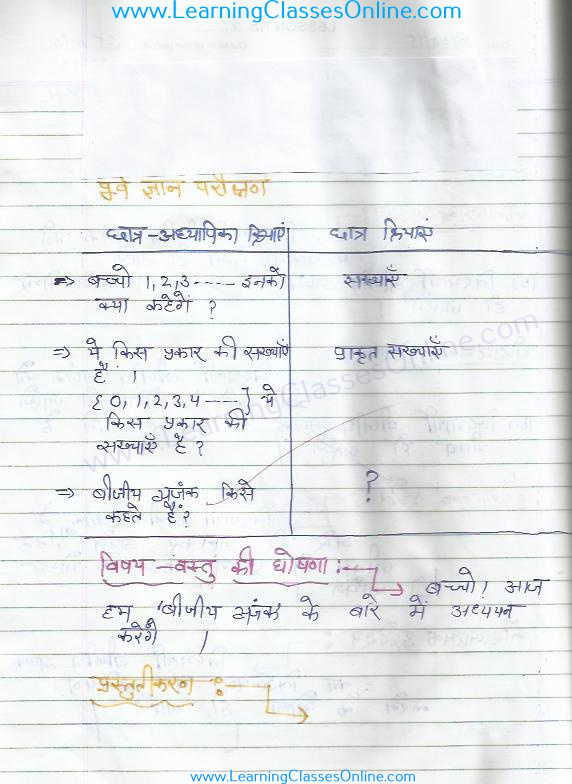 www.LearningClassesOnline.com
पूर्व ज्ञान परीक्षण
छात्र-अध्यापिका क्रियाएं छात्र क्रियाएं
⇒ बच्चो 1,2,3---- इनको सख्याएँ
क्या कहेगें ?
⇒ ये किस प्रकार की सख्याएँ प्राकृत सख्याएँ
हैं ।
{ 0, 1, 2, 3, 4 ---- } ये
किस प्रकार की
सख्याएँ है ?
⇒ बीजीय व्यूजंक किसे ?
कहते हैं?
विषय-वस्तु की घोषणा :- बच्चो! आज
हम 'बीजीय के बारे में अध्ययन
करेगें ।
प्रस्तुतीकरण :-
www.LearningClassesOnline.com
www.LearningClassesOnline.com